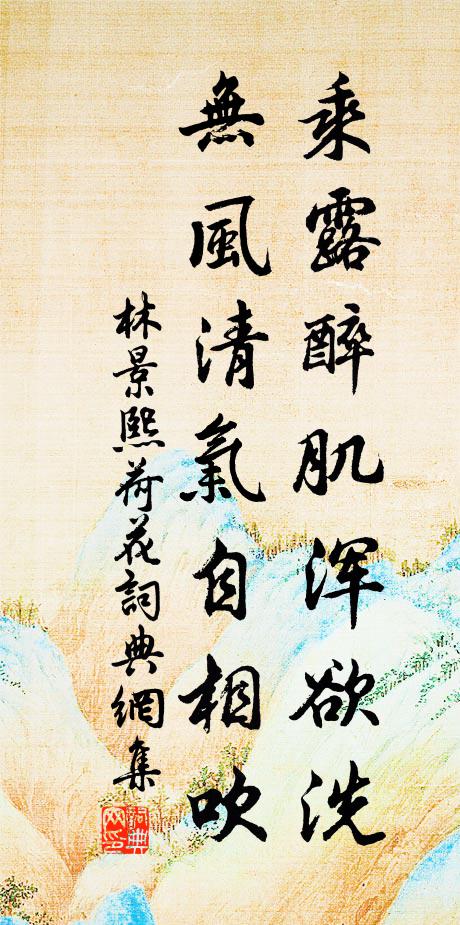 乘露醉肌浑欲洗
無風清氣自相吹
林景熙荷花詞典網集
詞典網印